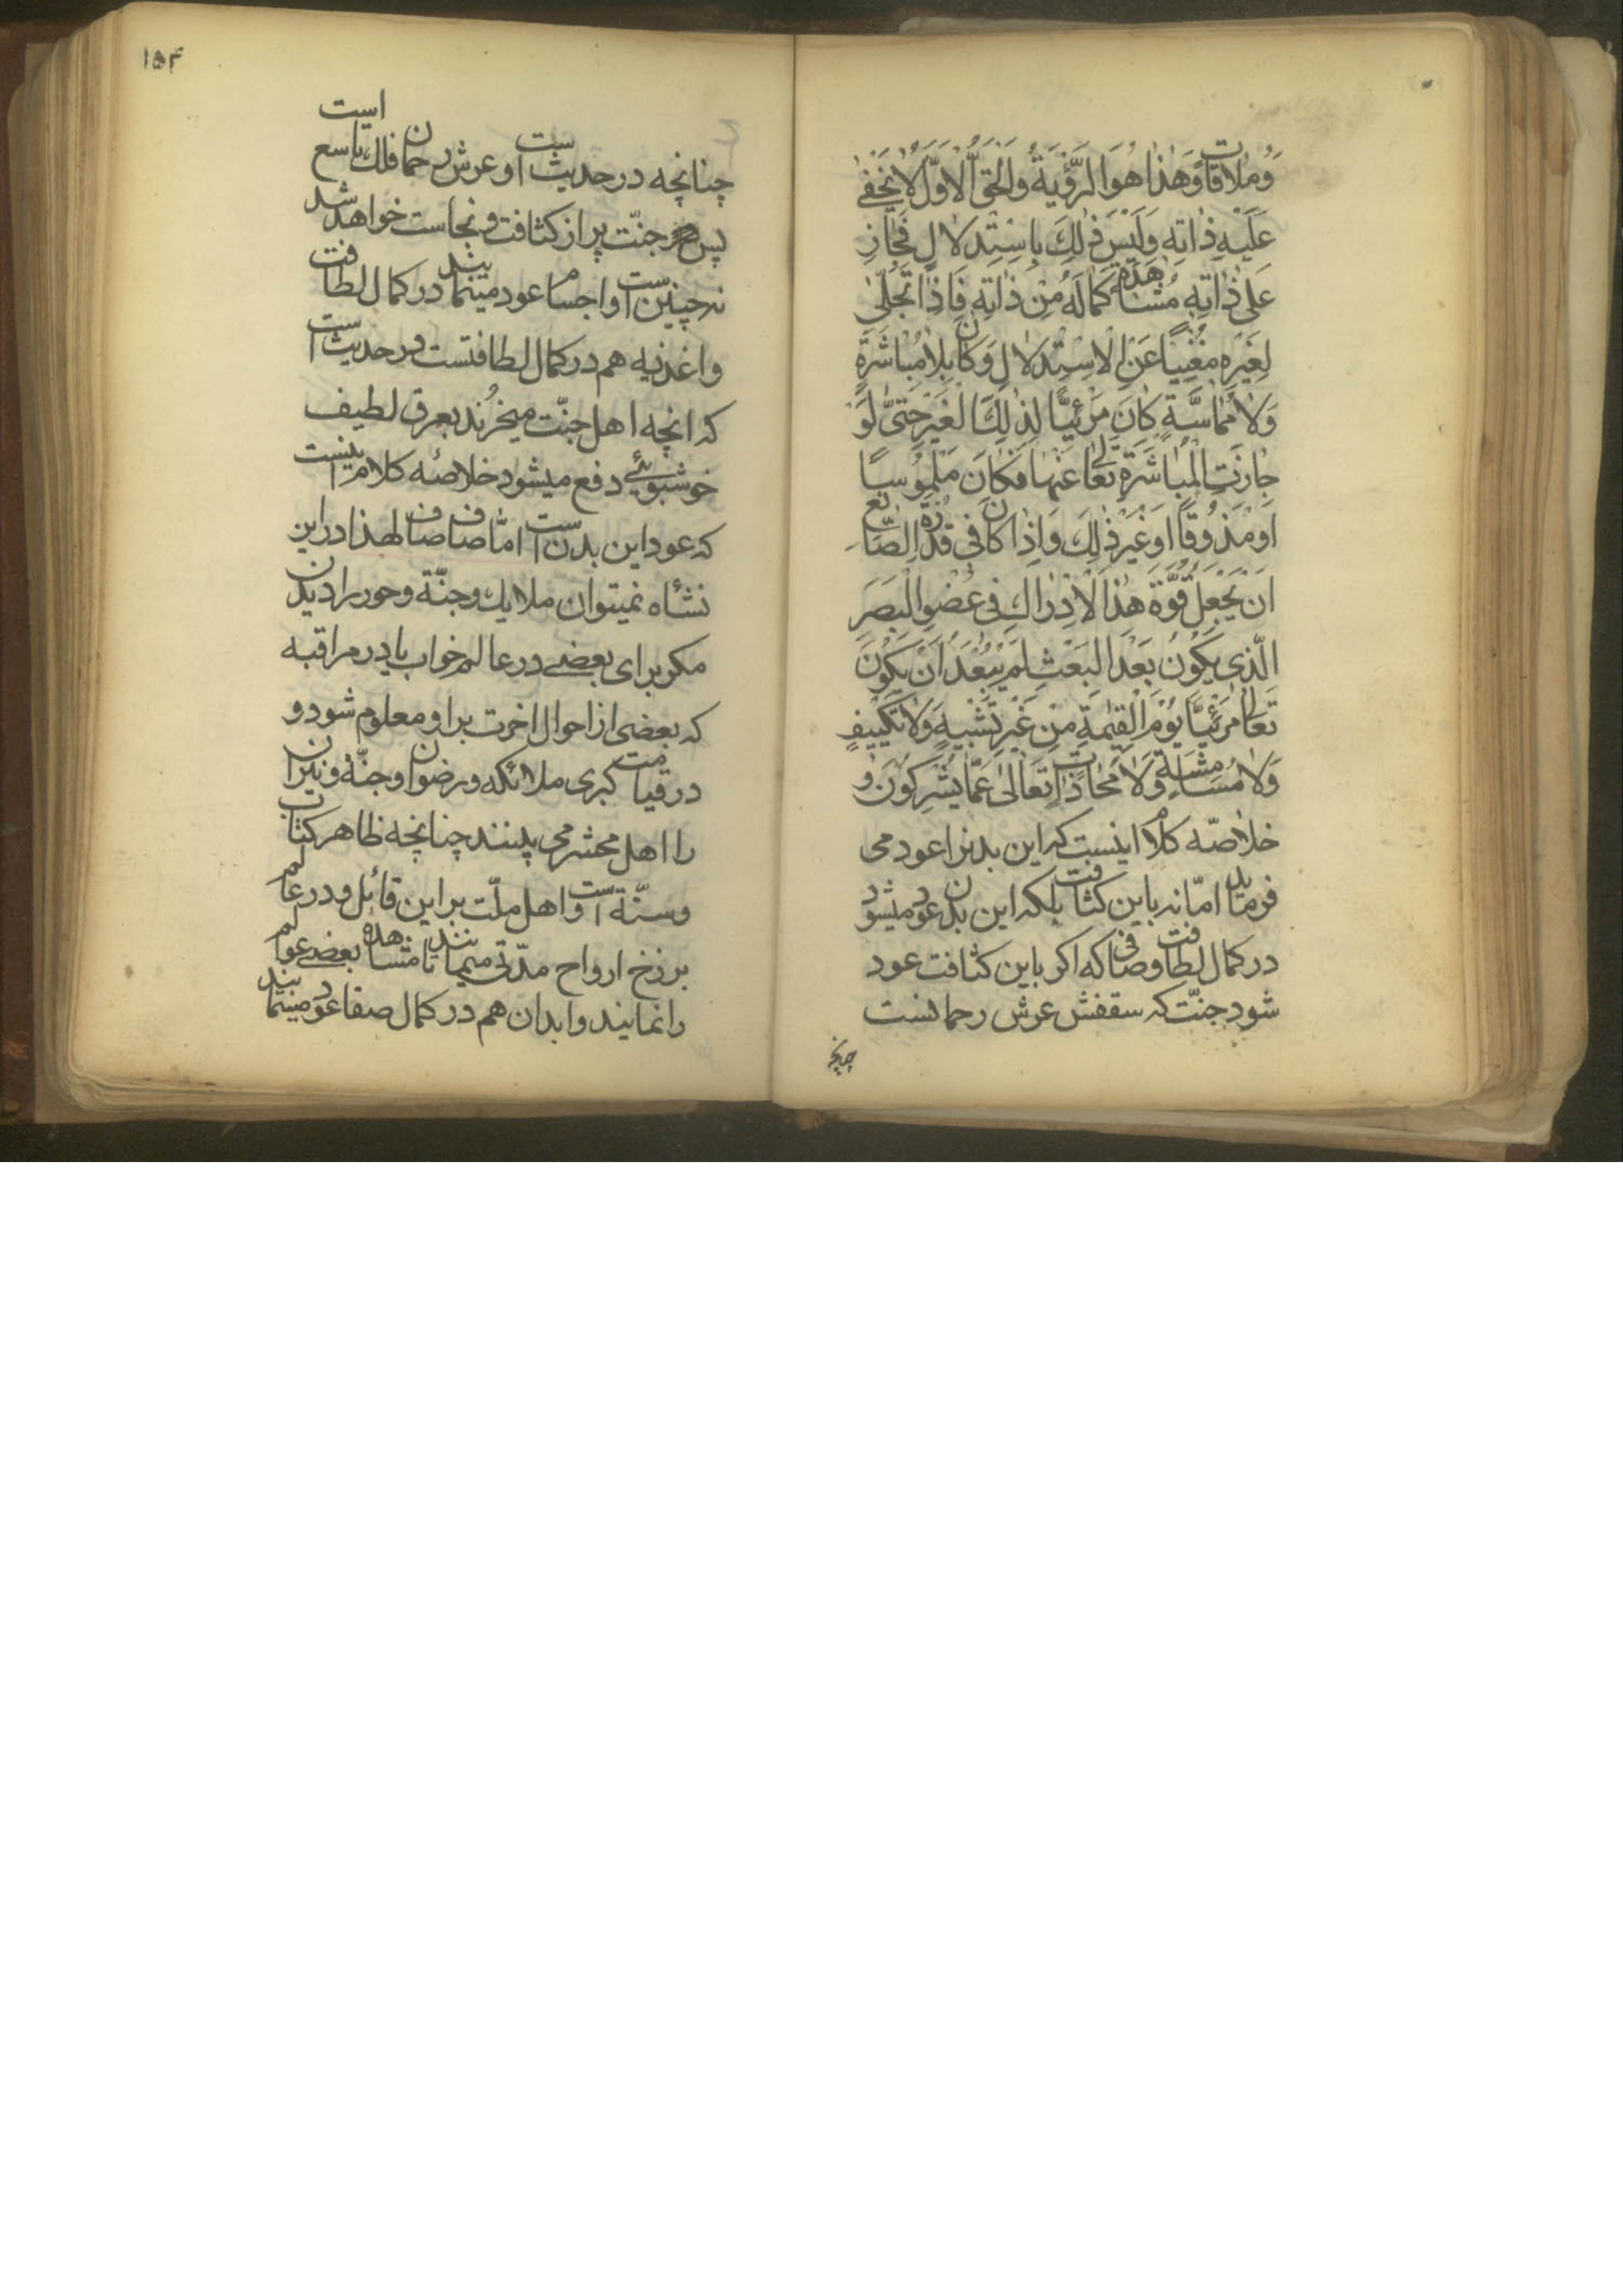 وَمُلاقاتٍ وَهٰذا هُوَ الرُّؤْيَةُ وَالْحَقُّ الْاَوَّلُ لا يَخْفٰى
عَلَيْهِ ذاتِهِ وَلَيْسَ ذٰلِكَ بِاسْتِدْلالٍ فَجازَ
عَلٰى ذاتِهِ مُشاهَدَةُ كَمالِهِ مِنْ ذاتِهِ فَاِذا تَجَلّٰى
لِغَيْرِهِ مُغْنِيًا عَنِ الْاِسْتِدْلالِ وَكانَ بِلا مُباشَرَةٍ
وَلا مُماسَّةٍ كانَ مَرْئِيًّا لِذٰلِكَ الْغَيْرِ حَتّٰى لَوْ
جازَتِ الْمُباشَرَةُ تَعالٰى عَنْها فَكانَ مَلْمُوسًا
اَوْ مَذُوقًا اَوْ غَيْرَ ذٰلِكَ وَاِذا كانَ فى قُدْرَةِ الصّانِعِ
اَنْ يَجْعَلَ قُوَّةَ هٰذَا الْاِدْراكِ فى عُضْوِ الْبَصَرِ
الَّذى يَكُونُ بَعْدَ الْبَعْثِ لَمْ يَبْعُدْ اَنْ يَكُونَ
تَعالٰى مَرْئِيًّا يَوْمَ الْقِيٰمَةِ مِنْ غَيْرِ تَشْبيهٍ وَلا تَكْييفٍ
وَلا مُسامَتَةٍ وَلا مُحاذاتٍ تَعالٰى عَمّا يُشْرِكُونَ و
خلاصّه كلام اينست كه اين بدنرا عود مى
فرمايد امّا نه باين كثافت بلكه اين بدن عود ميشود
در كمال لطافت وصافى كه اكر باين كثافت عود
شود جنّت كه سقفش عرش رحمانست
چنانچه
١٥٤
چنانچه در حديث است و عرش رحمان فلك تاسع است
پس جنّت پر از كثافت و نجاست خواهد شد
نه چنين است و اجسام عود مينمايند در كمال لطافت
و اغذيه هم در كمال لطافتست در حديث است
كه انچه اهل جنّت ميخُرند بعرق لطيف
خوشبوئى دفع ميشود خلاصهٔ كلام اينست
كه عود اين بدن است امّا صاف صاف لهذا در اين
نشأه نميتوان ملايك و جنّة و حور را ديدن
مكر براى بعضى در عالم خواب يا در مراقبه
كه بعضى از احوال اخرت بر او معلوم شود و
در قيامت كبرى ملائكه و رضوان و جنّة و نيران
را اهل محشر مى بينند چنانچه ظاهر كتاب
و سنّة است و اهل ملّت بر اين قائل و در عالم
برزخ ارواح مدّتى ميمانند تا مشاهده بعضى عوالم
را نمايند و ابدان هم در كمال صفا عود مينمايند